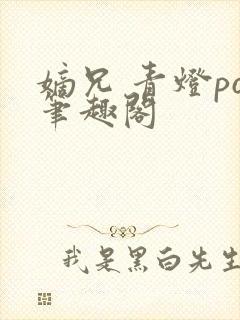 嫡兄 青燈po
筆趣閣
我是黑白先生